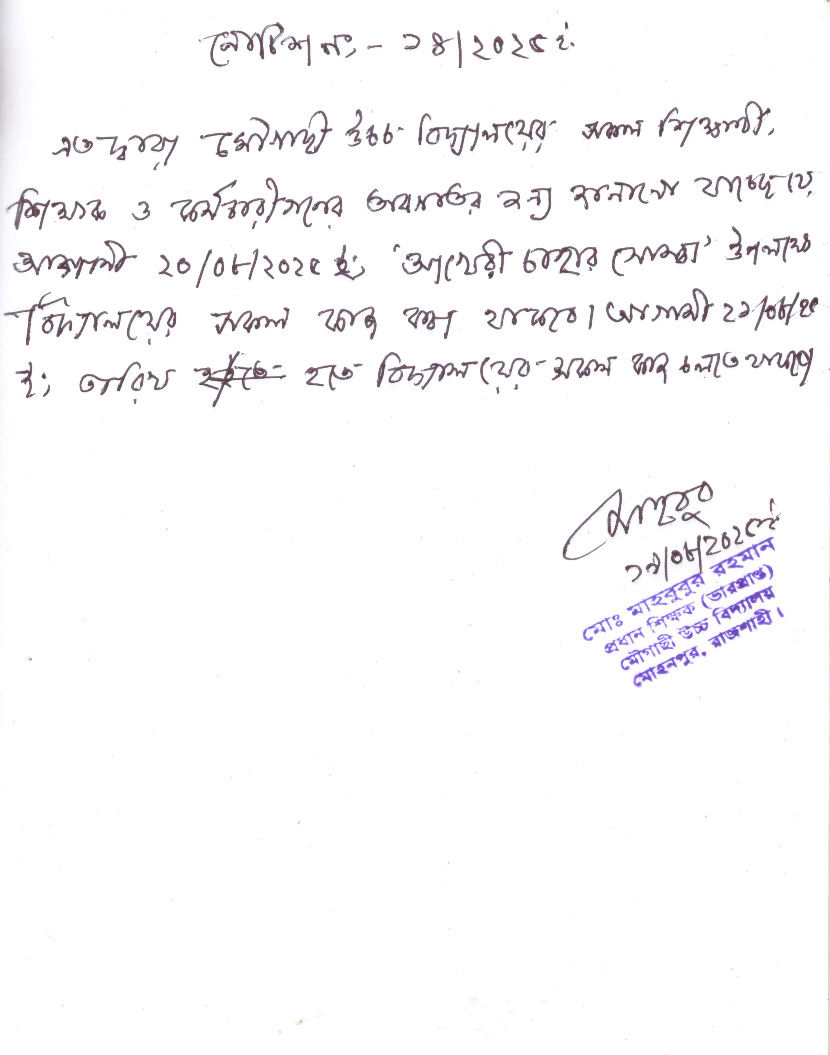 নোটিশ নং - ১৪/২০২৫ ইং
এতদ্বারা মৌগাছী উচ্চ বিদ্যালয়ের সকল শিক্ষার্থী,
শিক্ষক ও কর্মচারীগনের অবগতির জন্য জানানো যাচ্ছে যে,
আগামী ২০/০৮/২০২৫ ইং 'আখেরী চাহার সোম্বা' উপলক্ষে
বিদ্যালয়ের সকল কাজ বন্ধ থাকবে। আগামী ২১/০৮/২৫
ইং তারিখ হতে বিদ্যালয়ের সকল কাজ চলতে থাকবে
মাহবুব
১৯/০৮/২০২৫ ইং
মোঃ মাহবুবুর রহমান
প্রধান শিক্ষক (ভারপ্রাপ্ত)
মৌগাছী উচ্চ বিদ্যালয়
মোহনপুর, রাজশাহী।